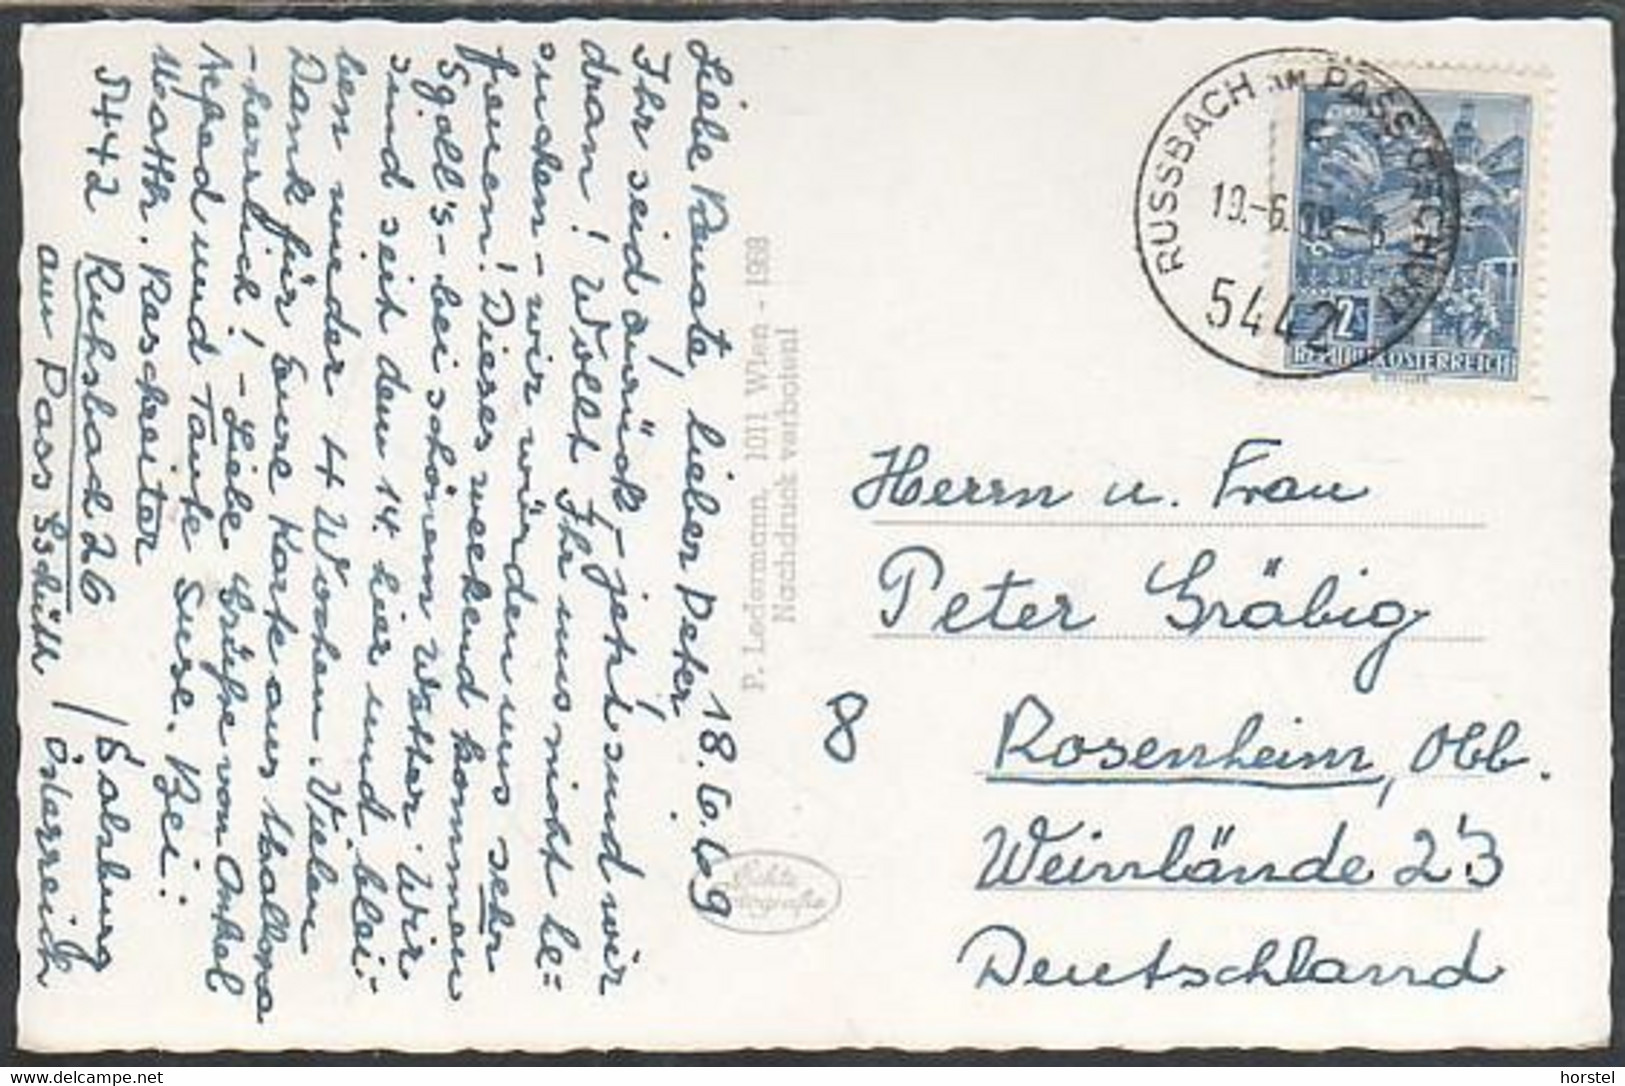 18.6.69
Liebe Renate, lieber Peter!
Ihr seid zurück – jetzt sind wir
dran! Wollt Ihr uns nicht be=
suchen – wir würden uns sehr
freuen! Dieses weekend kommen
Sgoll's – bei schönem Wetter. Wir
sind seit dem 14. hier und blei-
ben wieder 4 Wochen. Vielen
Dank für Eure Karte aus
– herrlich! – Liebe Grüße von Onkel
Alfred und Tante Suse. Bei:
Matth. Rescheiter
5442 Rußbach 26
am Pass Gschütt / Salzburg
Österreich
P. Ledermann, 1011 Wien - 1968
Nachdruck verboten!
Echte
Fotografie
RUSSBACH AM PASS GSCHÜTT
19.-6.69--
5442
2 S
REPUBLIK ÖSTERREICH
Herrn u. Frau
Peter Gräbig
8
Rosenheim, Obb.
Weinlände 23
Deutschland
www.delcampe.net
horstel